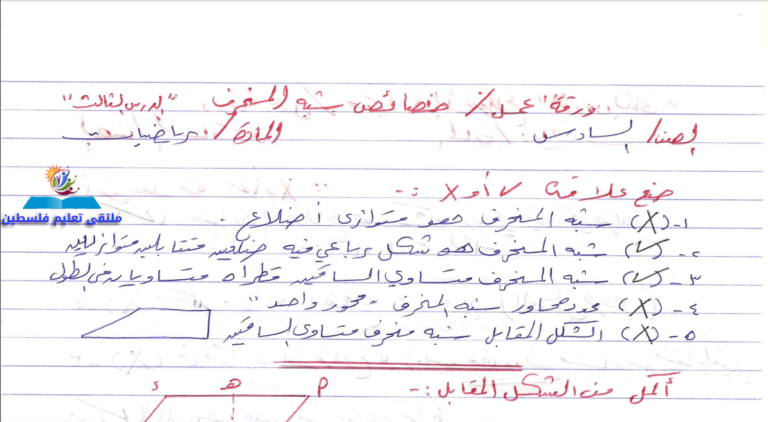 ورقة عمل / خصائص شبه المنحرف "الدرس الثالث"
الصف / السادس المادة / رياضيات
ملتقى تعليم فلسطين
ضع علامة √ أو X :-
١- (X) شبه المنحرف هو متوازي أضلاع.
٢- (√) شبه المنحرف هو شكل رباعي فيه ضلعين متقابلين متوازيين
٣- (√) شبه المنحرف متساوي الساقين قطراه متساويان في الطول
٤- (X) محاور شبه المنحرف "محور واحد"
٥- (X) الشكل المقابل شبه منحرف متساوي الساقين
أكمل من الشكل المقابل :-
م هـ ء